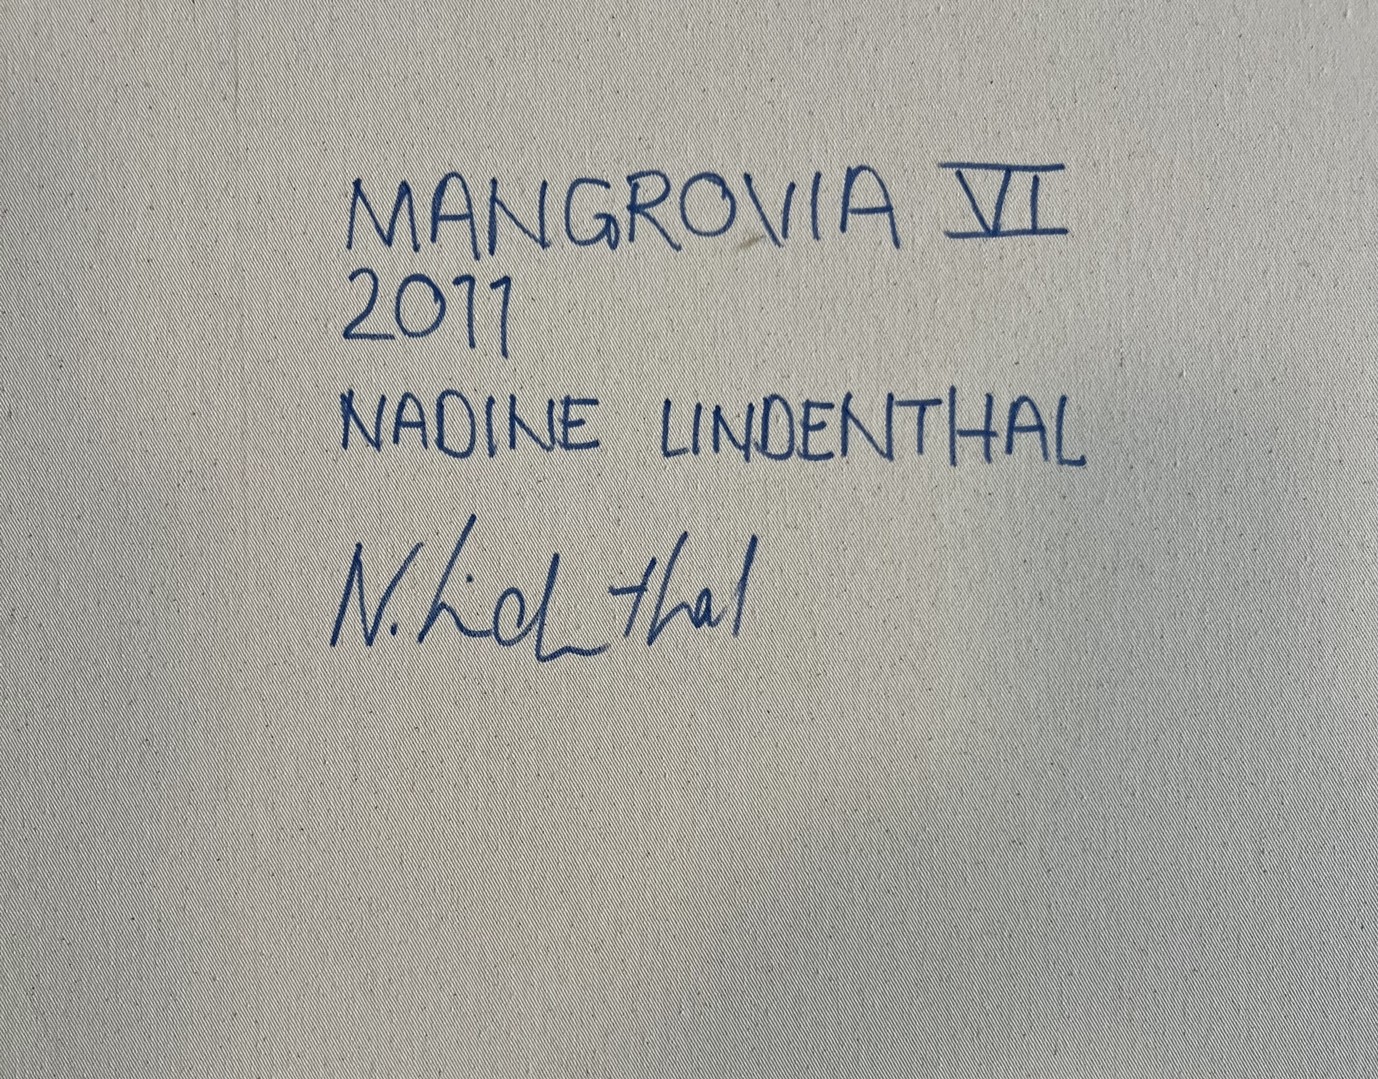 MANGROVIA VI
2011
NADINE LINDENTHAL
N. Lindenthal